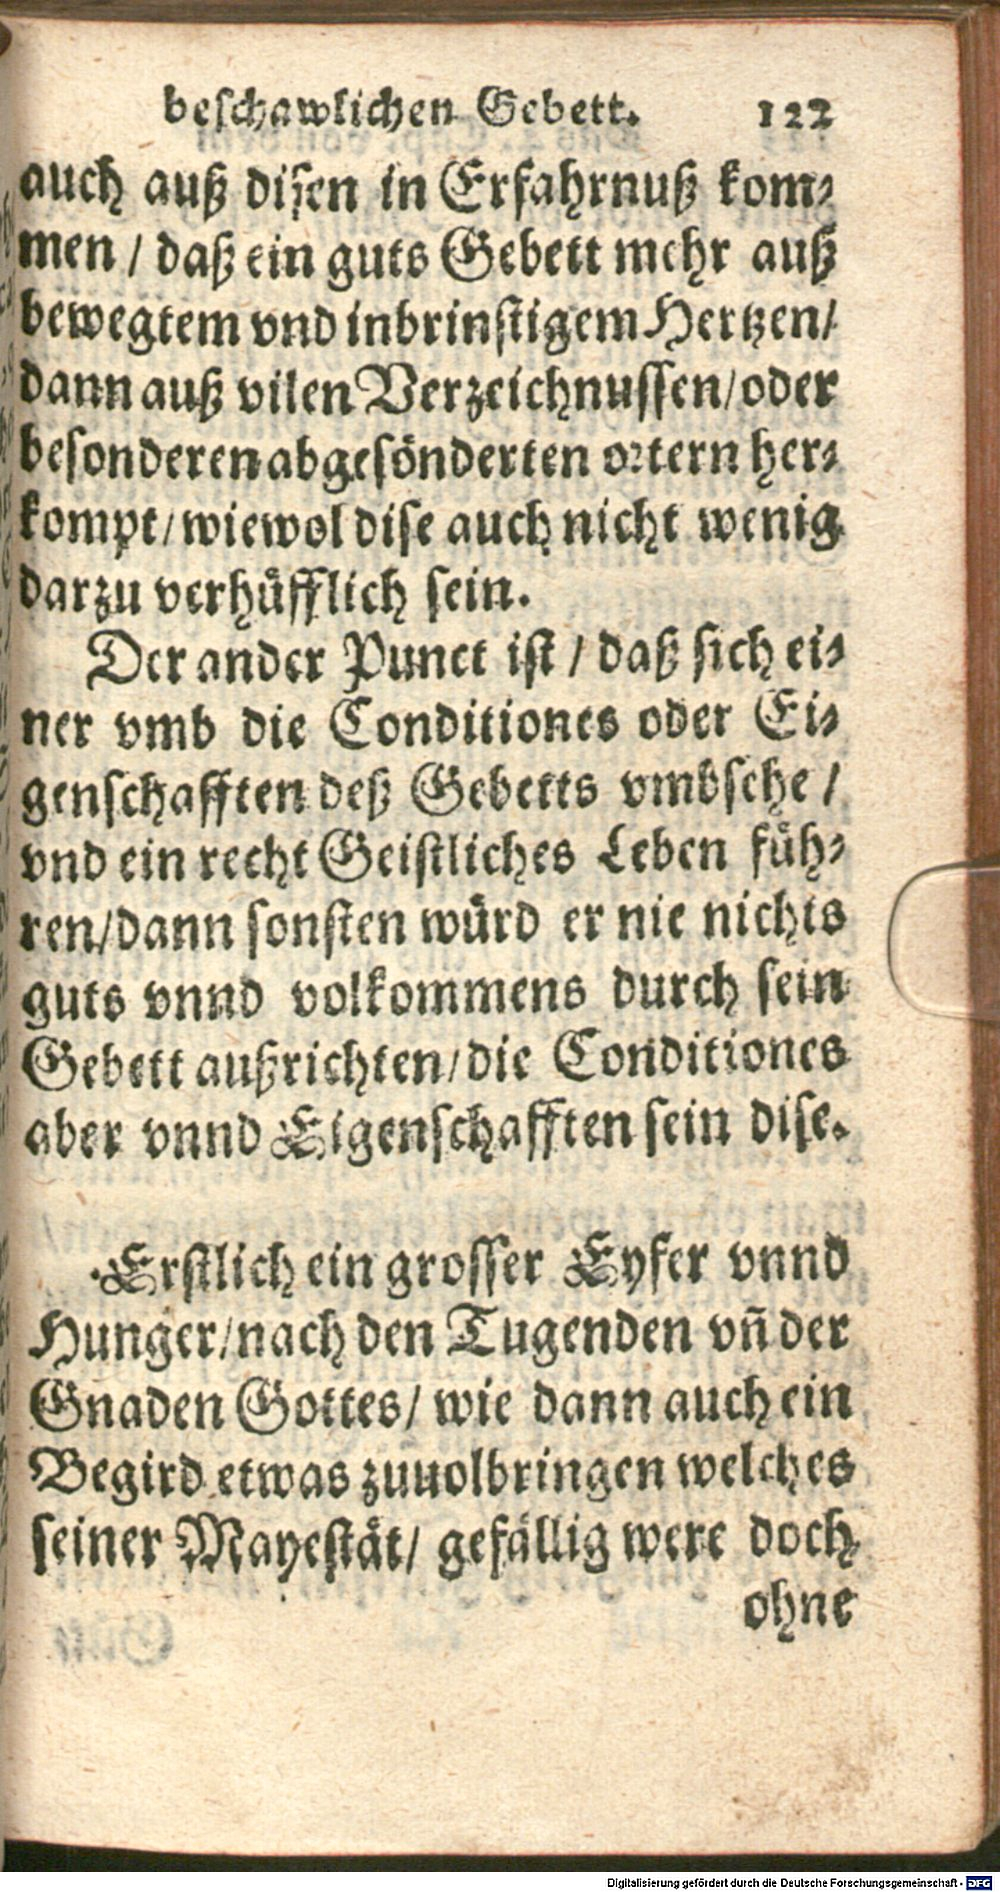 beschawlichen Gebett. 122
auch auß disen in Erfahrnuß kom-
men / daß ein guts Gebett mehr auß
bewegtem vnd inbrinstigem Hertzen/
dann auß vilen Verzeichnussen/oder
besonderen abgesönderten ortern her-
kompt/wiewol dise auch nicht wenig
darzu verhüfflich sein.
Der ander Punct ist / daß sich ei-
ner vmb die Conditiones oder Ei-
genschafften deß Gebetts vmbsehe /
vnd ein recht Geistliches Leben füh-
ren/dann sonsten würd er nie nichts
guts vnnd volkommens durch sein
Gebett außrichten/die Conditiones
aber vnnd Eigenschafften sein dise.
Erstlich ein grosser Eyfer vnnd
Hunger/nach den Tugenden vñ der
Gnaden Gottes/ wie dann auch ein
Begird etwas zuuolbringen welches
seiner Mayestät/ gefällig were doch
ohne
Digitalisierung gefördert durch die Deutsche Forschungsgemeinschaft - DFG